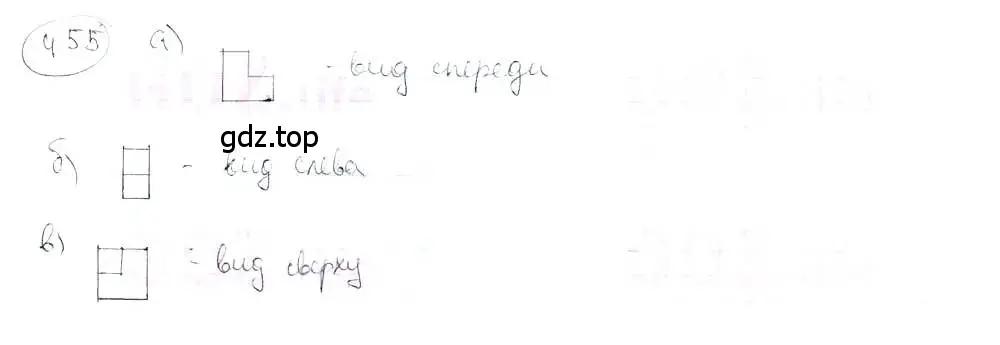 455 а) - вид спереди
gdz.top
б) - вид слева
в) - вид сверху